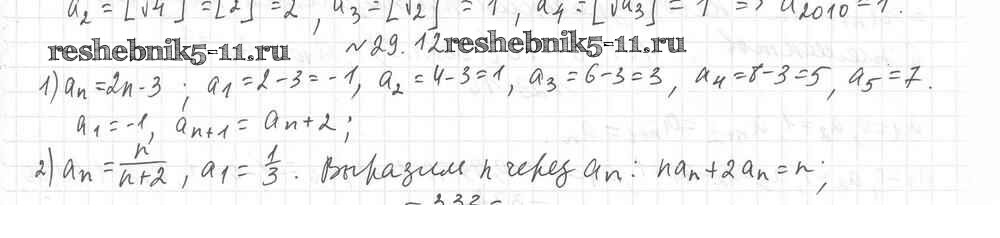 a₂ = [√4] = [2] = 2, a₃ = [√2] = 1, a₄ = [√a₃] = 1 => a₂₀₁₀ = 1.
reshebnik5-11.ru №29.12 reshebnik5-11.ru
1) aₙ = 2n - 3 ; a₁ = 2 - 3 = -1, a₂ = 4 - 3 = 1, a₃ = 6 - 3 = 3, a₄ = 8 - 3 = 5, a₅ = 7.
a₁ = -1, aₙ₊₁ = aₙ + 2;
2) aₙ = n/(n+2), a₁ = 1/3. Выразим n через aₙ: naₙ + 2aₙ = n;